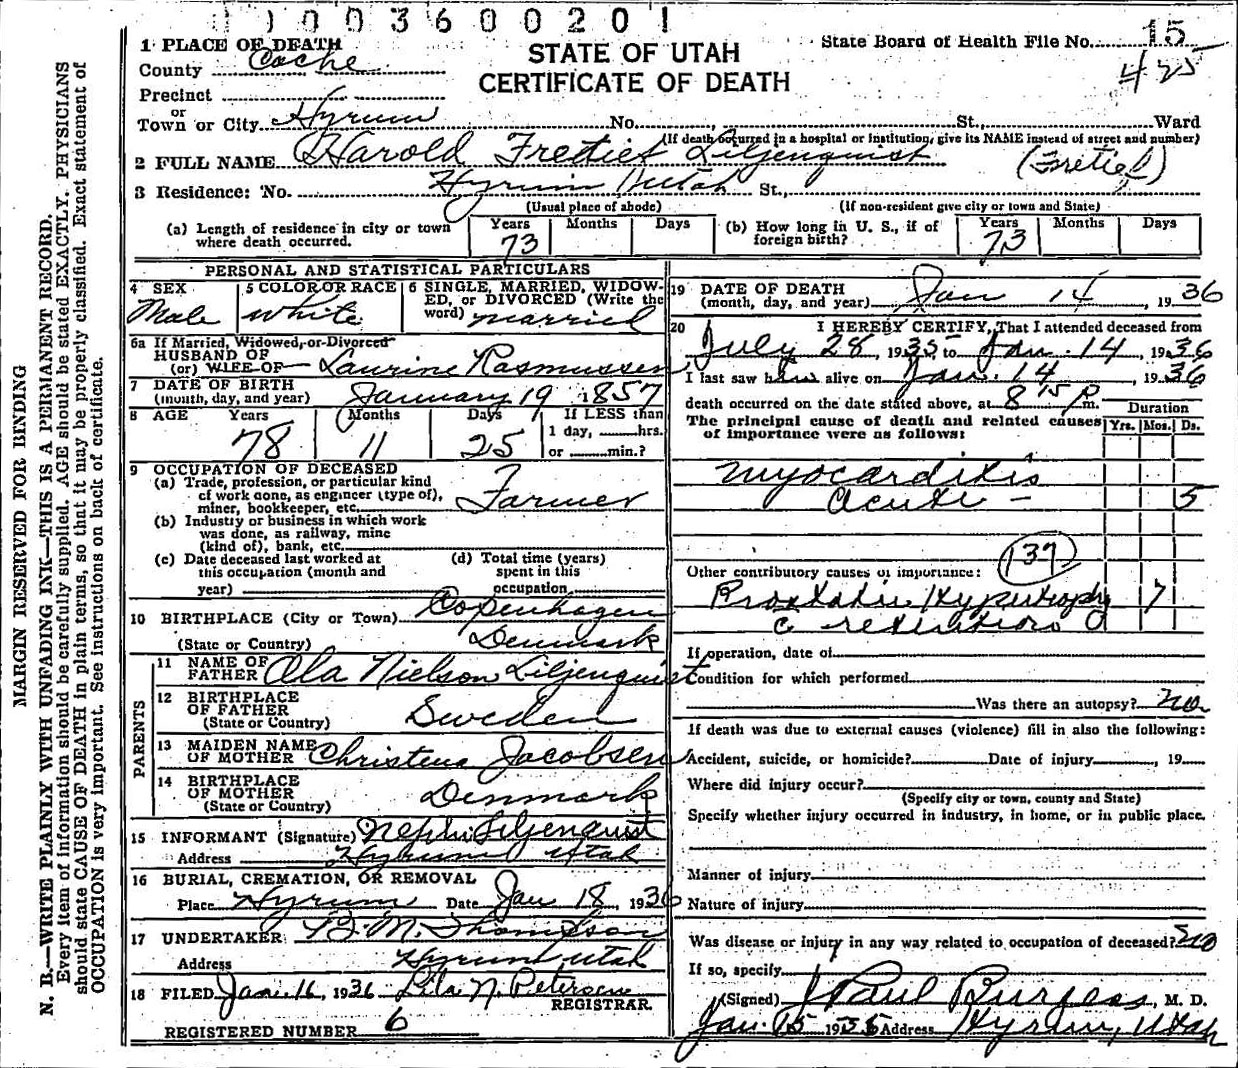 1003600201
1 PLACE OF DEATH
County Cache
STATE OF UTAH
CERTIFICATE OF DEATH
State Board of Health File No. 15
425
Precinct
or
Town or City Hyrum No. St., Ward
(If death occurred in a hospital or institution, give its NAME instead of street and number)
2 FULL NAME Harold Fretief Liljenquist (Fretief)
3 Residence: No. Hyrum Utah St.,
(Usual place of abode) (If non-resident give city or town and State)
(a) Length of residence in city or town where death occurred. Years 73 Months Days
(b) How long in U. S., if of foreign birth? Years 73 Months Days
PERSONAL AND STATISTICAL PARTICULARS
4 SEX Male
5 COLOR OR RACE White
6 SINGLE, MARRIED, WIDOWED, or DIVORCED (Write the word) married
6a If Married, Widowed, or Divorced
HUSBAND OF
(or) WIFE OF Laurine Rasmussen
7 DATE OF BIRTH
(month, day, and year) January 19 1857
8 AGE Years 78 Months 11 Days 25 If LESS than
1 day, hrs.
or min.?
9 OCCUPATION OF DECEASED
(a) Trade, profession, or particular kind
of work done, as engineer (type of),
miner, bookkeeper, etc. Farmer
(b) Industry or business in which work
was done, as railway, mine
(kind of), bank, etc.
(c) Date deceased last worked at
this occupation (month and
year)
(d) Total time (years)
spent in this
occupation
10 BIRTHPLACE (City or Town) Copenhagen
(State or Country) Denmark
PARENTS
11 NAME OF
FATHER Ola Nielson Liljenquist
12 BIRTHPLACE
OF FATHER
(State or Country) Sweden
13 MAIDEN NAME
OF MOTHER Christena Jacobsen
14 BIRTHPLACE
OF MOTHER
(State or Country) Denmark
15 INFORMANT (Signature) Nephi Liljenquist
Address Hyrum Utah
16 BURIAL, CREMATION, OR REMOVAL
Place Hyrum Date Jan 18, 1936
17 UNDERTAKER B. M. Thompson
Address Hyrum Utah
18 FILED Jan. 16, 1936 Lila N. Petersen
REGISTRAR.
REGISTERED NUMBER 6
19 DATE OF DEATH
(month, day, and year) Jan 14, 1936
20 I HEREBY CERTIFY, That I attended deceased from
July 28, 1935 to Jan. 14, 1936
I last saw him alive on Jan. 14, 1936
death occurred on the date stated above, at 8 15 p m.
The principal cause of death and related causes
of importance were as follows:
Duration
Yrs. Mos. Ds.
myocarditis
acute - 5
137
Other contributory causes of importance:
Prostatic Hypertrophy 7
c retention
If operation, date of
Condition for which performed
Was there an autopsy? no
If death was due to external causes (violence) fill in also the following:
Accident, suicide, or homicide? Date of injury , 19
Where did injury occur?
(Specify city or town, county and State)
Specify whether injury occurred in industry, in home, or in public place.
Manner of injury
Nature of injury
Was disease or injury in any way related to occupation of deceased? No
If so, specify
(Signed) J Paul Burgess, M. D.
Jan. 15 1936 Address Hyrum, Utah
MARGIN RESERVED FOR BINDING
N. B.—WRITE PLAINLY WITH UNFADING INK—THIS IS A PERMANENT RECORD.
Every item of information should be carefully supplied. AGE should be stated EXACTLY. PHYSICIANS
should state CAUSE OF DEATH in plain terms, so that it may be properly classified. Exact statement of
OCCUPATION is very important. See instructions on back of certificate.